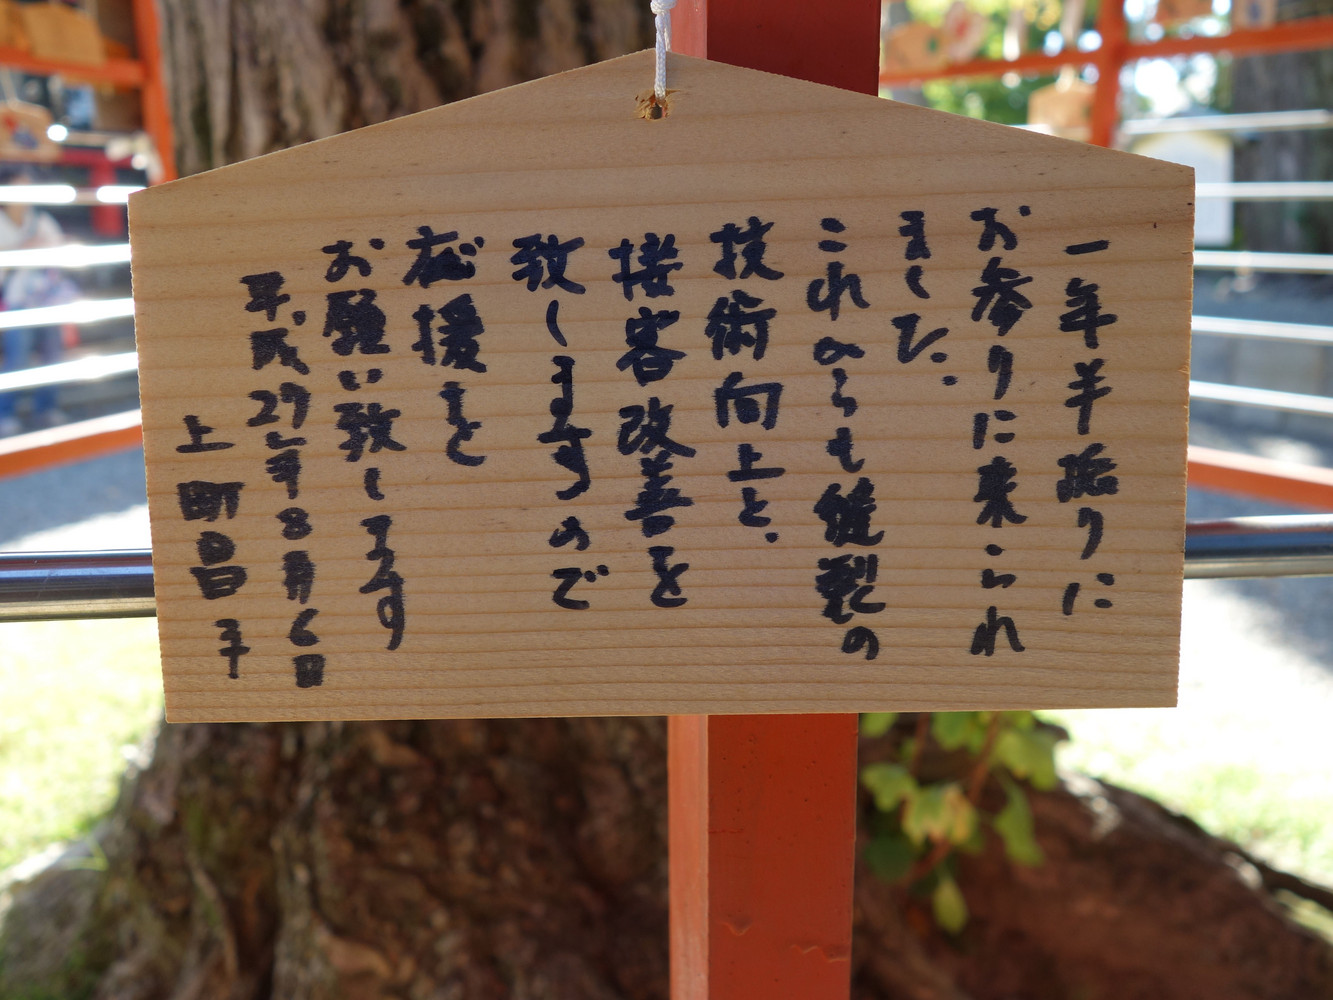 一年半振りに
お参りに来られ
ました。
これからも縫製の
技術向上と、
接客改善を
致しますので
応援を
お願い致します
平成27年8月6日
上町昌平